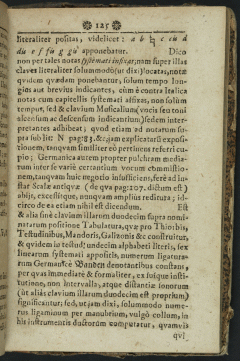 125
literaliter positas, videlicet: a b ♮ c cü d
dü e f fü g gü apponebatur. Dico
non per tales notas systemati infixas; nam super illas
claves literaliter solummodò (ut dixi) locatas, notæ
quædam quædam ponebantur, solum tempo lon-
gius aut brevius indicantes, cùm è contra Italica
notas cum capitellis systemati affixas, non solùm
tempus, sed & clavium Musicalium (vocis seu toni
ascensum ac descensum indicantium) sedem inter-
pretantes adhibeat; quod etiam ad notarum so-
pra sub lit: N pag: explicaturis exposi-
tionem, tanquam similiter eò pertinens referri cu-
pio; Germanica autem propter pulchram media-
rum inter se variè certantium vocum commixtio-
nem, tanquam huic negotio insufficiens, ferè ad in-
star Scalæ antiquæ (de qua pag: 107. dictum est)
abijt, excessitque, nunquam ampliùs reditura; id-
circo de ea etiam nihil est dicendum. Est
& alia sinè clavium illarum duodecim supra nomi-
natarum positione Tabulatura, quæ pro Thiorbis,
Testudinibus, Mandoris, Galizonis & construitur,
& quidem in testud: undecim alphabeti literis, sex
linearum systemati appositis, numerum ligatura-
rum Germanicè Banden denotantibus constans,
per quas immediatè & formaliter, ex usuque institu-
tione, non Intervalla, atque distantiæ sonorum
(ut aliàs clavium illarum duodecim est proprium)
significantur; sed, ut jam dixi, solummodo nume-
rus ligaminum per manubrium, vulgò collum, in
his instrumentis ductorum computatur, quamvis
qvi